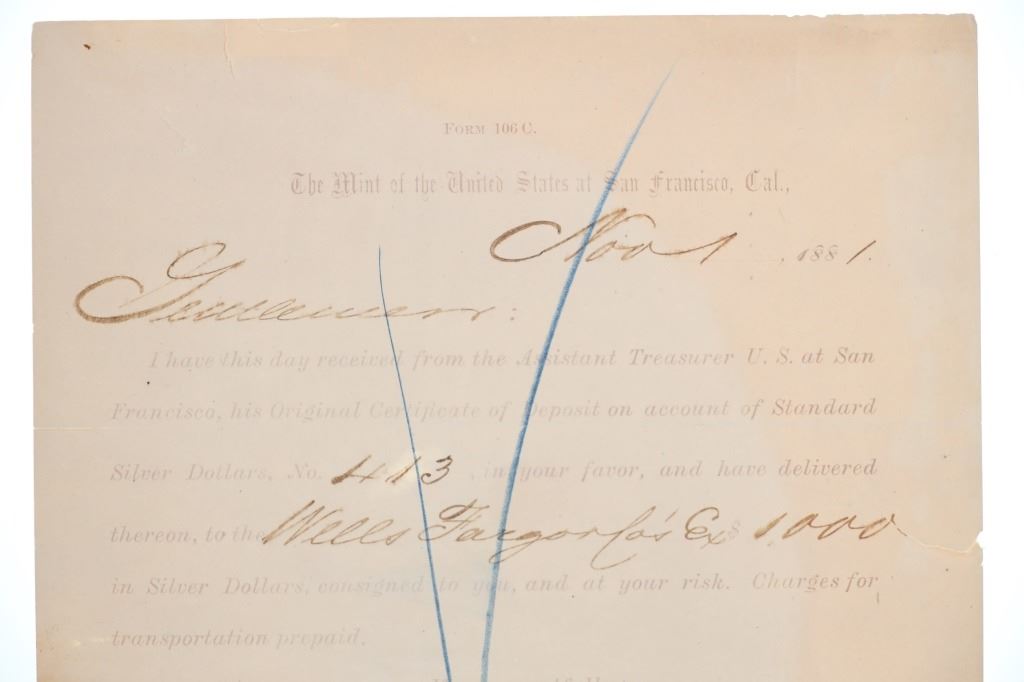 FORM 106 C.
The Mint of the United States at San Francisco, Cal.,
Nov 1, 1881.
Gentlemen:
I have this day received from the Assistant Treasurer U. S. at San
Francisco, his Original Certificate of Deposit on account of Standard
Silver Dollars, No. 413, in your favor, and have delivered
thereon, to the Wells Fargo & Co's Ex $ 1,000
in Silver Dollars, consigned to you, and at your risk. Charges for
transportation prepaid.